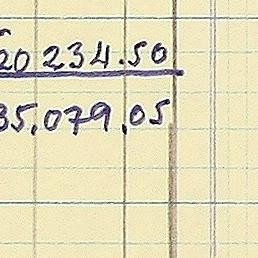 20 234.50
35.079.05